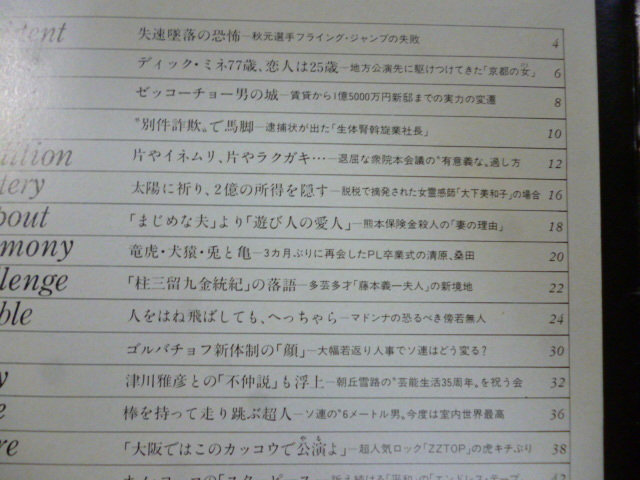 失速墜落の恐怖─秋元選手フライング・ジャンプの失敗 4
ディック・ミネ77歳、恋人は25歳─地方公演先に駆けつけてきた「京都の女」 6
ゼッコーチョー男の城─賃貸から1億5000万円新邸までの実力の変遷 8
〝別件詐欺〟で馬脚─逮捕状が出た「生体腎斡旋業社長」 10
片やイネムリ、片やラクガキ…─退屈な衆院本会議の〝有意義な〟過し方 12
tery 太陽に祈り、2億の所得を隠す─脱税で摘発された女霊感師「大下美和子」の場合 16
bout 「まじめな夫」より「遊び人の愛人」─熊本保険金殺人の「妻の理由」 18
mony 竜虎・犬猿・兎と亀─3カ月ぶりに再会したPL卒業式の清原、桑田 20
llenge 「柱三留九金統紀」の落語─多芸多才「藤本義一夫人」の新境地 22
ble 人をはね飛ばしても、へっちゃら─マドンナの恐るべき傍若無人 24
ゴルバチョフ新体制の「顔」─大幅若返り人事でソ連はどう変る? 30
y 津川雅彦との「不仲説」も浮上─朝丘雪路の〝芸能生活35周年〟を祝う会 32
e 棒を持って走り跳ぶ超人─ソ連の〝6メートル男〟今度は室内世界最高 36
re 「大阪ではこのカッコウで公演よ」─超人気ロック「ZZTOP」の虎キチぶり 38